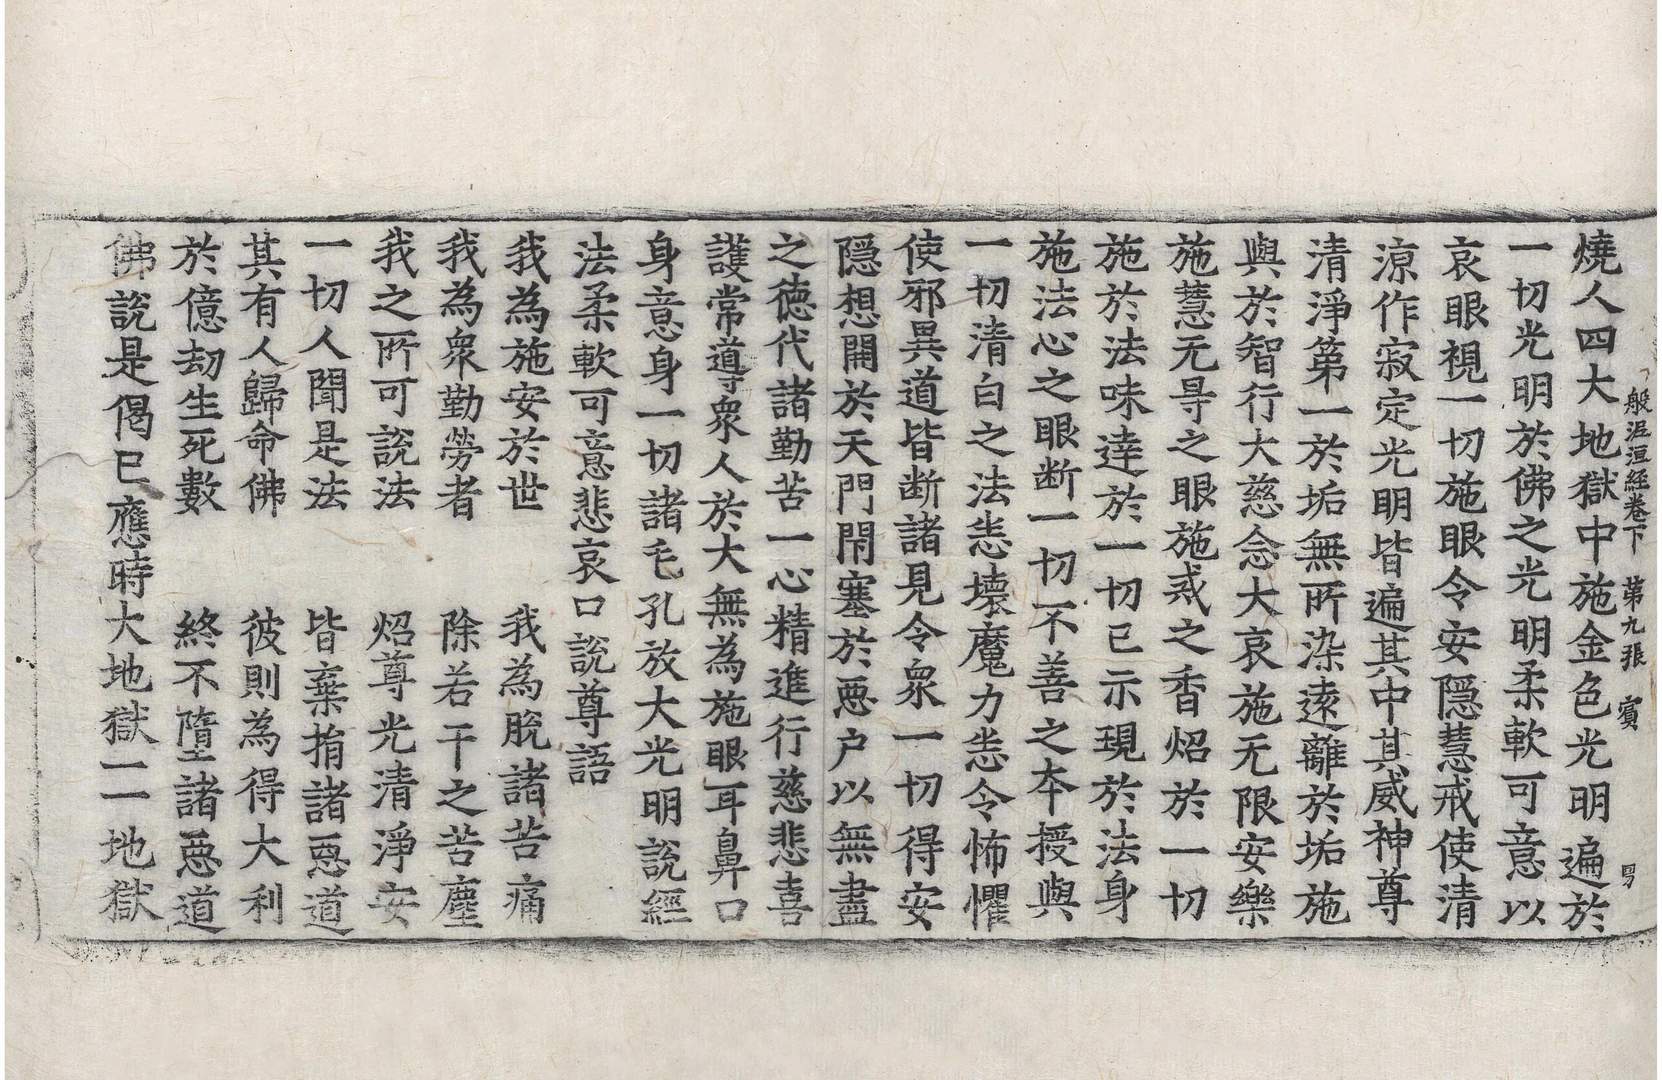 般泥洹經卷下 第九張 賓
燒人四大地獄中施金色光明遍於
一切光明於佛之光明柔軟可意以
哀眼視一切施眼令安隱慧戒使清
涼作寂定光明皆遍其中其威神尊
清淨第一於垢無所染遠離於垢施
與於智行大慈念大哀施无限安樂
施慧无㝵之眼施戒之香炤於一切
施於法味達於一切已示現於法身
施法心之眼断一切不善之本授與
一切清白之法恙壞魔力恙令怖懼
使邪異道皆断諸見令衆一切得安
隱想開於天門閇塞於惡户以無盡
之德代諸勤苦一心精進行慈悲喜
護常導衆人於大無為施眼耳鼻口
身意身一切諸毛孔放大光明說經
法柔軟可意悲哀口說尊語
我為施安於世 我為脫諸苦痛
我為衆勤勞者 除若干之苦塵
我之所可說法 炤尊光清淨安
一切人聞是法 皆棄捐諸惡道
其有人歸命佛 彼則為得大利
於億劫生死數 終不墮諸惡道
佛說是偈已應時大地獄一一地獄